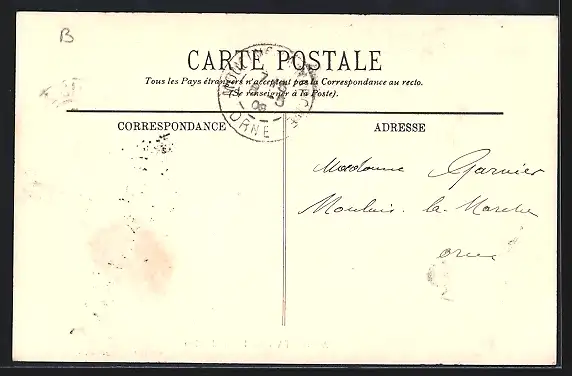 B
CARTE POSTALE
Tous les Pays étrangers n'acceptent pas la Correspondance au recto.
(Se renseigner à la Poste).
MOULINS LA MARCHE
ORNE
CORRESPONDANCE
ADRESSE
Madame Garnier
Moulins-la-Marche
Orne